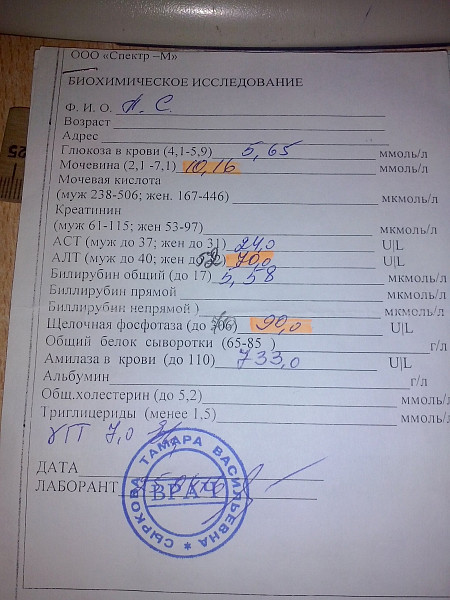 ООО «Спектр –М»
БИОХИМИЧЕСКОЕ ИССЛЕДОВАНИЕ
Ф. И О.
Возраст
Адрес
Глюкоза в крови (4,1-5,9) 5,65 ммоль/л
Мочевина (2,1 -7,1) 10,16 ммоль/л
Мочевая кислота
(муж 238-506; жен. 167-446) мкмоль/л
Креатинин
(муж 61-115; жен 53-97) мкмоль/л
АСТ (муж до 37; жен до 31) 24,0 U|L
АЛТ (муж до 40; жен до 52) 70,0 U|L
Билирубин общий (до 17) 5,58 мкмоль/л
Биллирубин прямой мкмоль/л
Биллирубин непрямой ) мкмоль/л
Щелочная фосфотаза (до 306) 90,0 U|L
Общий белок сыворотки (65-85 ) г/л
Амилаза в крови (до 110) 733,0 U|L
Альбумин г/л
Общ.холестерин (до 5,2) ммоль/л
Триглицериды (менее 1,5) ммоль/л
γГТ 7,0
ДАТА
ЛАБОРАНТ
ВРАЧ
СЫРКОВА ТАМАРА ВАСИЛЬЕВНА
25